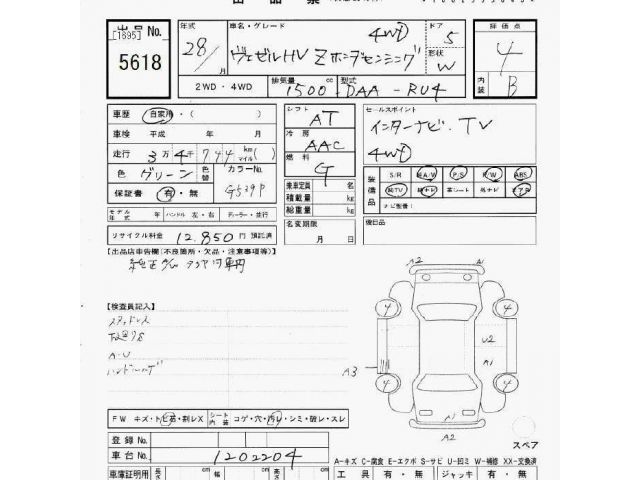 出品No.
[1695]
5618
年式
28/月
車名・グレード
ヴェゼルHV Zホンダセンシング
4WD
ドア
5
形状
W
評価点
4
内装
B
2WD・4WD
排気量
1500
型式
DAA-RU4
車歴 自家用・( )
車検 平成 年 月
走行 3万4千744 km マイル( )
色 グリーン カラーNo. G539P
保証書 有・無
モデル年式 年 ハンドル 左・右 ディーラー・並行
リサイクル料金 12,850円 預託済
シフト AT
冷房 AAC
燃料 G
乗車定員 名
積載量 kg
総重量 kg
名変期限
月 日
セールスポイント
インターナビ・TV
4WD
装備品
S/R AW P/S P/W ABS
純TV 純ナビ 革シート 外ナビ エアB
ナビ型番:
後日品
【出品店申告欄(不良箇所・欠品・注意事項等)】
【検査員記入】
スタッドレス
A-U
FW キズ・ト ビ石・割レX
シート内装 コゲ・穴・汚レ・シミ・破レ・スレ
登録No.
車台No. 1202204
車庫証明用 長さ cm 幅 cm 高さ cm
A2 A1
4 4
U2
A3
A1
4 4
A1
A2
スペア
A-キズ C-腐食 E-エクボ S-サビ U-凹ミ W-補修 XX-交換済
工具 有・無 ジャッキ 有・無